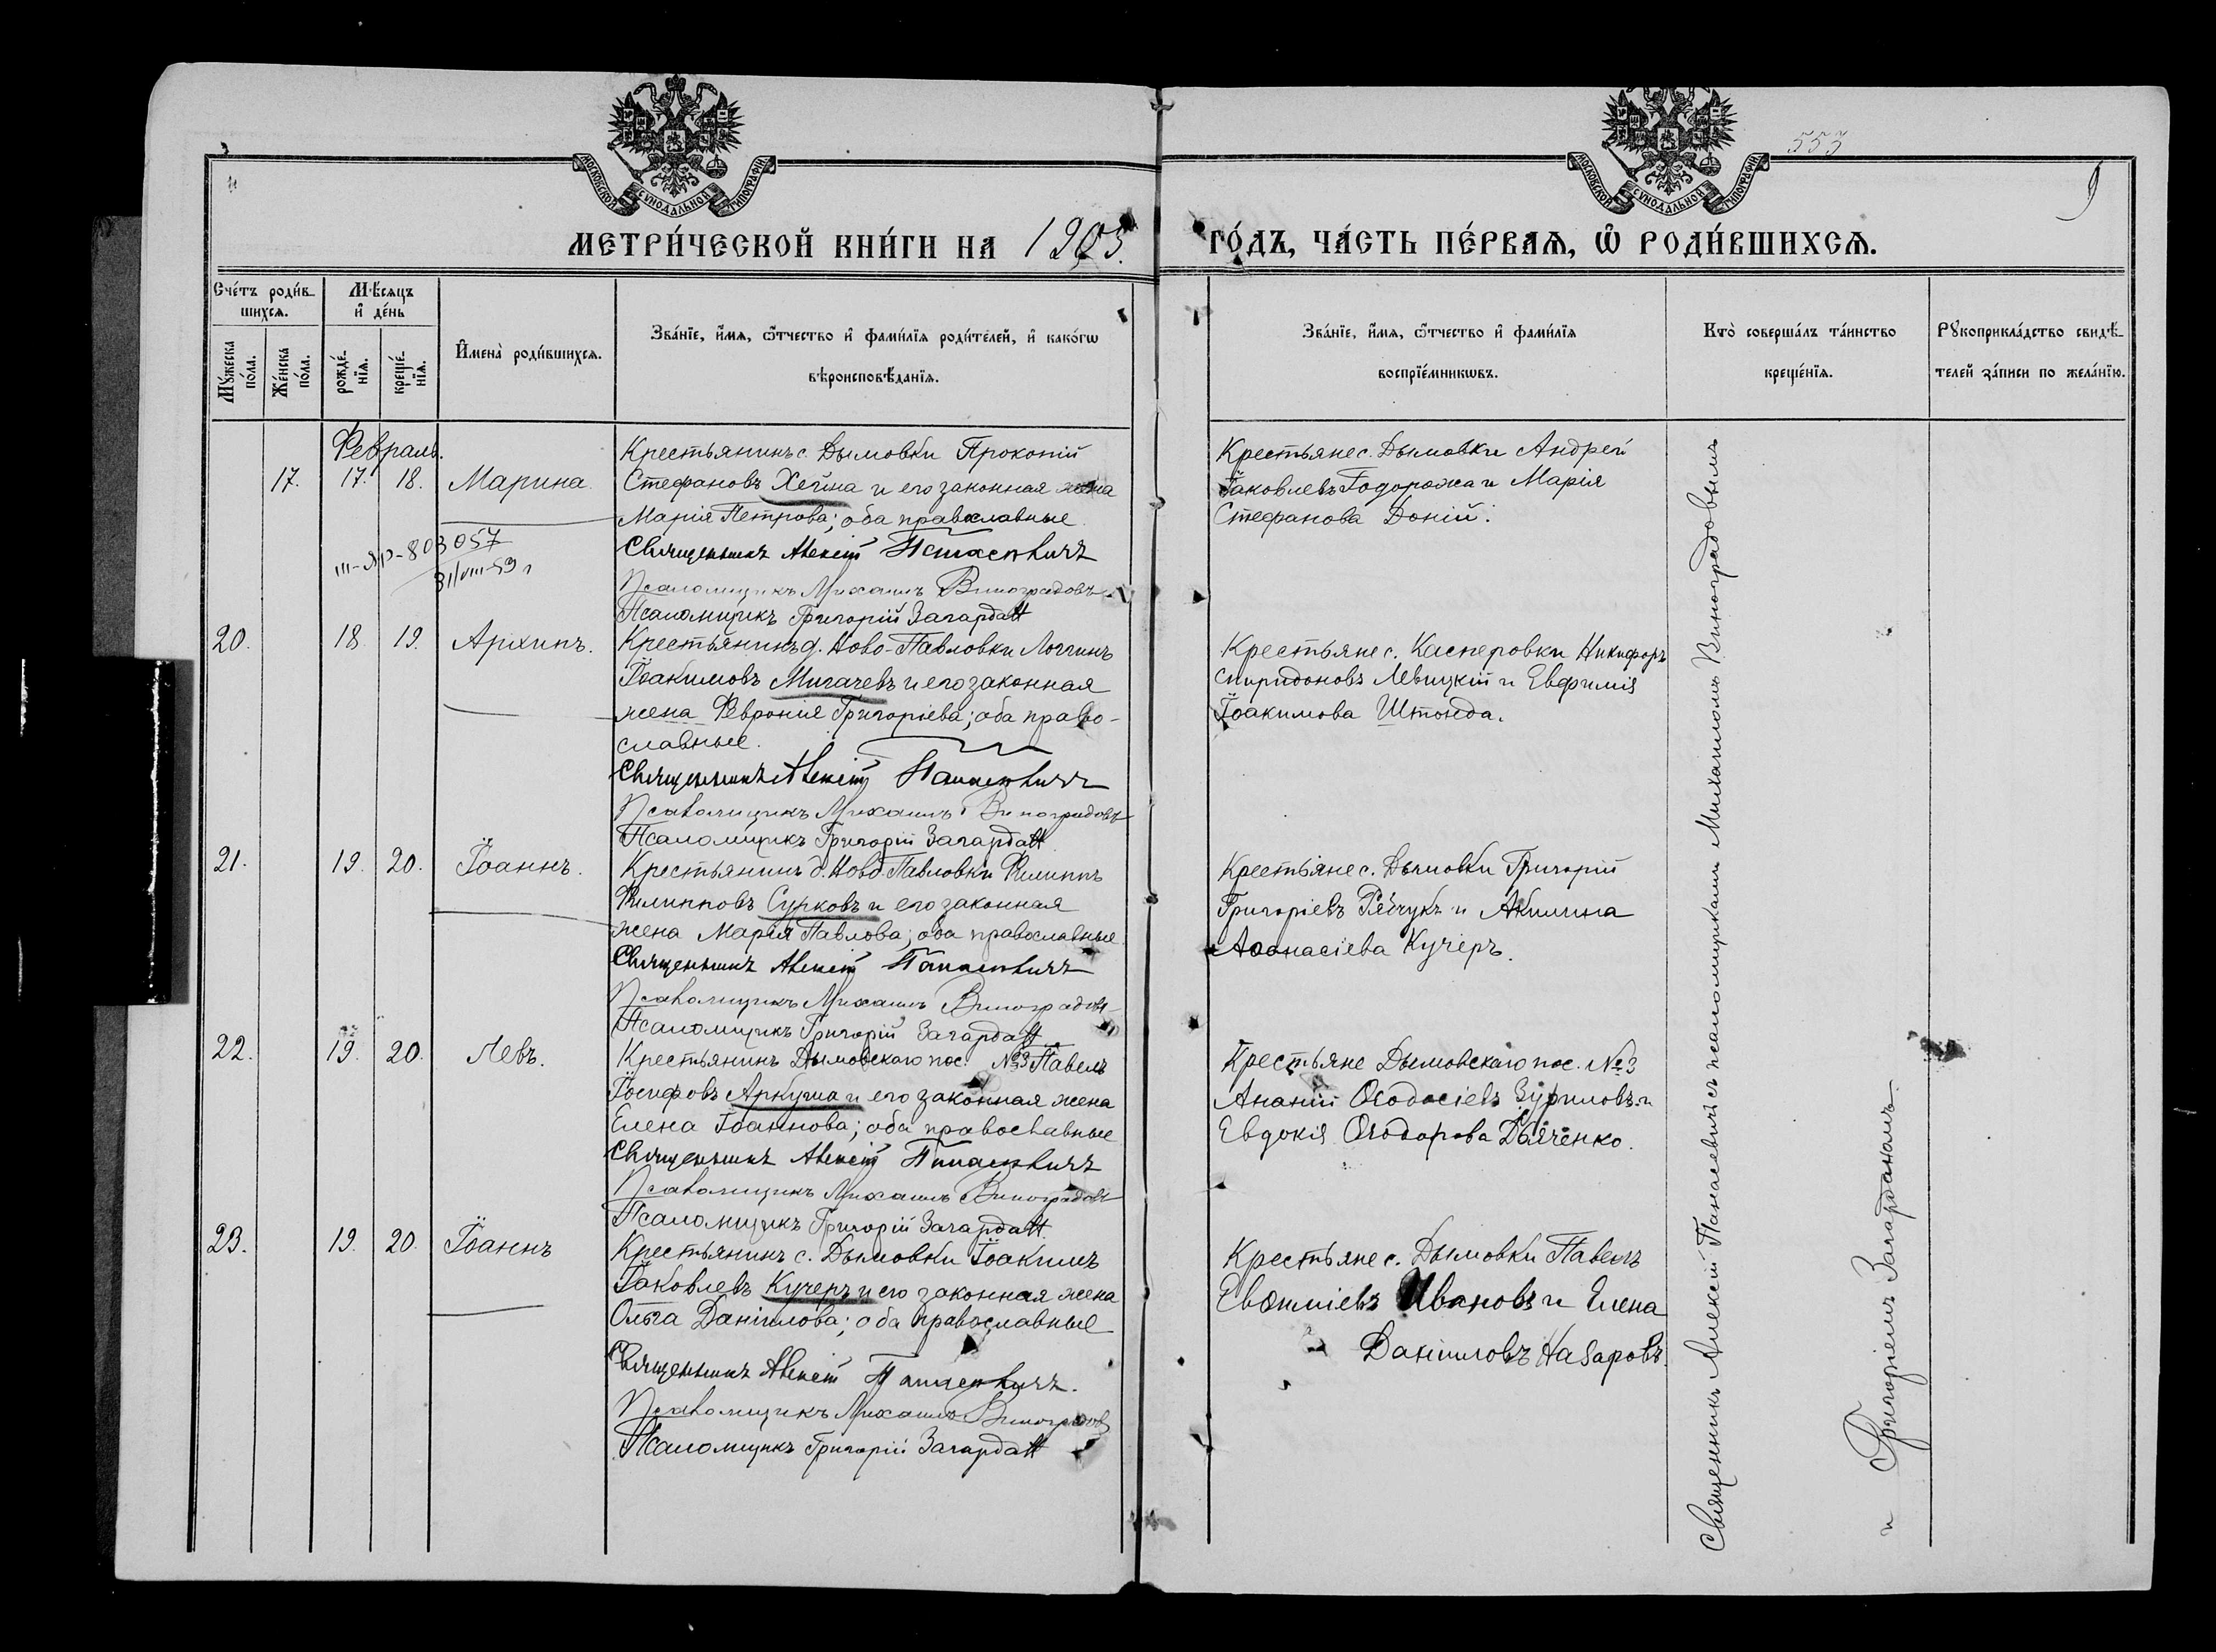 553
9
МОСКОВСКОЙ СѴНОДАЛЬНОЙ ТИПОГРАФІИ
МОСКОВСКОЙ СѴНОДАЛЬНОЙ ТИПОГРАФІИ
МЕТРИ́ЧЕСКОЙ КНИ́ГИ НА 1903. ГО́ДЪ, ЧА́СТЬ ПЕ́РВАѦ, Ѽ РОДИ́ВШИХСѦ.
Сче́тъ роди́в-
шихсѧ.
Мꙋ́жеска по́ла.
Же́нска по́ла.
Мѣ́сѧцъ и҆ де́нь
рожде́-нїѧ.
креще́-нїѧ.
И҆мена̀ роди́вшихсѧ.
Зва́нїе, и҆́мѧ, ѻ҆́тчество и҆ фами́лїѧ роди́телей, и҆ како́гѡ
вѣроисповѣ́данїѧ.
Зва́нїе, и҆́мѧ, ѻ҆́тчество и҆ фами́лїѧ
воспрїе́мникѡвъ.
Кто̀ соверша́лъ та́инство
креще́нїѧ.
Рꙋкоприкла́дство свидѣ́-
телей за́писи по жела́нїю.
Февраль.
17. 17. 18. Марина
Крестьянинъ с. Дымовки Прокопій
Стефановъ Хейна и его законная жена
Марія Петрова; оба православные
Священникъ Алексій Панасевичъ
Псаломщикъ Михаилъ Виноградовъ
Псаломщикъ Григорій Загардан
III-ЯР-803057
31/VIII-59 г
Крестьяне с. Дымовки Андрей
Іаковлевъ Тодорожа и Марія
Стефанова Доній.
20. 18. 19. Архипъ.
Крестьянинъ д. Ново-Павловки Логгинъ
Іоакимовъ Мигачевъ и его законная
жена Феврония Григоріева; оба право-
славные.
Священникъ Алексій Панасевичъ
Псаломщикъ Михаилъ Виноградовъ
Псаломщикъ Григорій Загардан
Крестьяне с. Касперовки Никифоръ
Спиридоновъ Левицкій и Евфимія
Іоакимова Штонда.
21. 19. 20. Іоаннъ.
Крестьянинъ д. Ново-Павловки Филиппъ
Филипповъ Сурковъ и его законная
жена Марія Павлова; оба православные
Священникъ Алексій Панасевичъ
Псаломщикъ Михаилъ Виноградовъ
Псаломщикъ Григорій Загардан
Крестьяне с. Дымовки Григорій
Григоріевъ Рябчукъ и Акилина
Аѳанасіева Кучеръ.
22. 19. 20. Левъ.
Крестьянинъ Дымовскаго пос. №3 Павелъ
Іосифовъ Аркуша и его законная жена
Елена Іоаннова; оба православные
Священникъ Алексій Панасевичъ
Псаломщикъ Михаилъ Виноградовъ
Псаломщикъ Григорій Загардан
Крестьяне Дымовскаго пос. №3
Ананій Ѳеодосіевъ Зуриловъ и
Евдокія Ѳеодорова Дяченко.
23. 19. 20. Іоаннъ
Крестьянинъ с. Дымовки Іоакимъ
Іаковлевъ Кучеръ и его законная жена
Ольга Даніилова; оба православные
Священникъ Алексій Панасевичъ.
Псаломщикъ Михаилъ Виноградовъ
Псаломщикъ Григорій Загардан
Крестьяне с. Дымовки Павелъ
Евѳиміевъ Ивановъ и Елена
Данииловъ Назаровъ.
Священникъ Алексій Панасевичъ съ псаломщиками Михаиломъ Виноградовымъ
и Григоріемъ Загарданомъ.